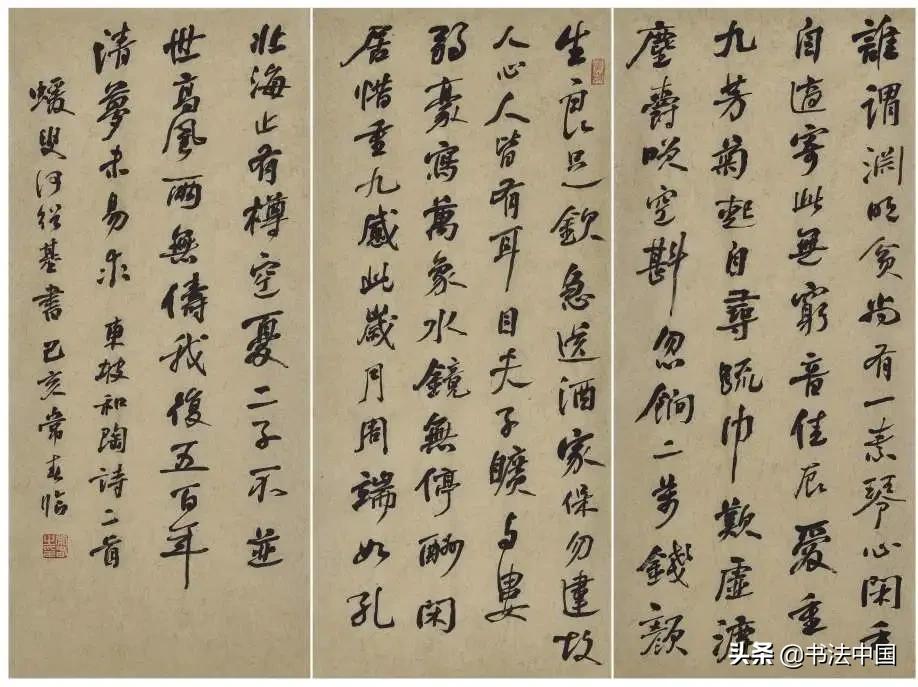 誰謂淵明貧尚有一素琴心閑手
自適寄此無窮音佳辰愛重
九芳菊起自尋疏巾歎虛漉
塵爵笑空斟忽餉二萬錢顏
生良足欽急送酒家保勿違故
人心人皆有耳目夫子曠與婁
弱豪寫萬象水鏡無停酬閑
居惜重九感此歲月周端如孔
北海止有樽空憂二子不並
世高風兩無儔我後五百年
清夢未易求 東坡和陶詩二首
蝯叟何紹基書 己亥常春臨
头条 @书法中国